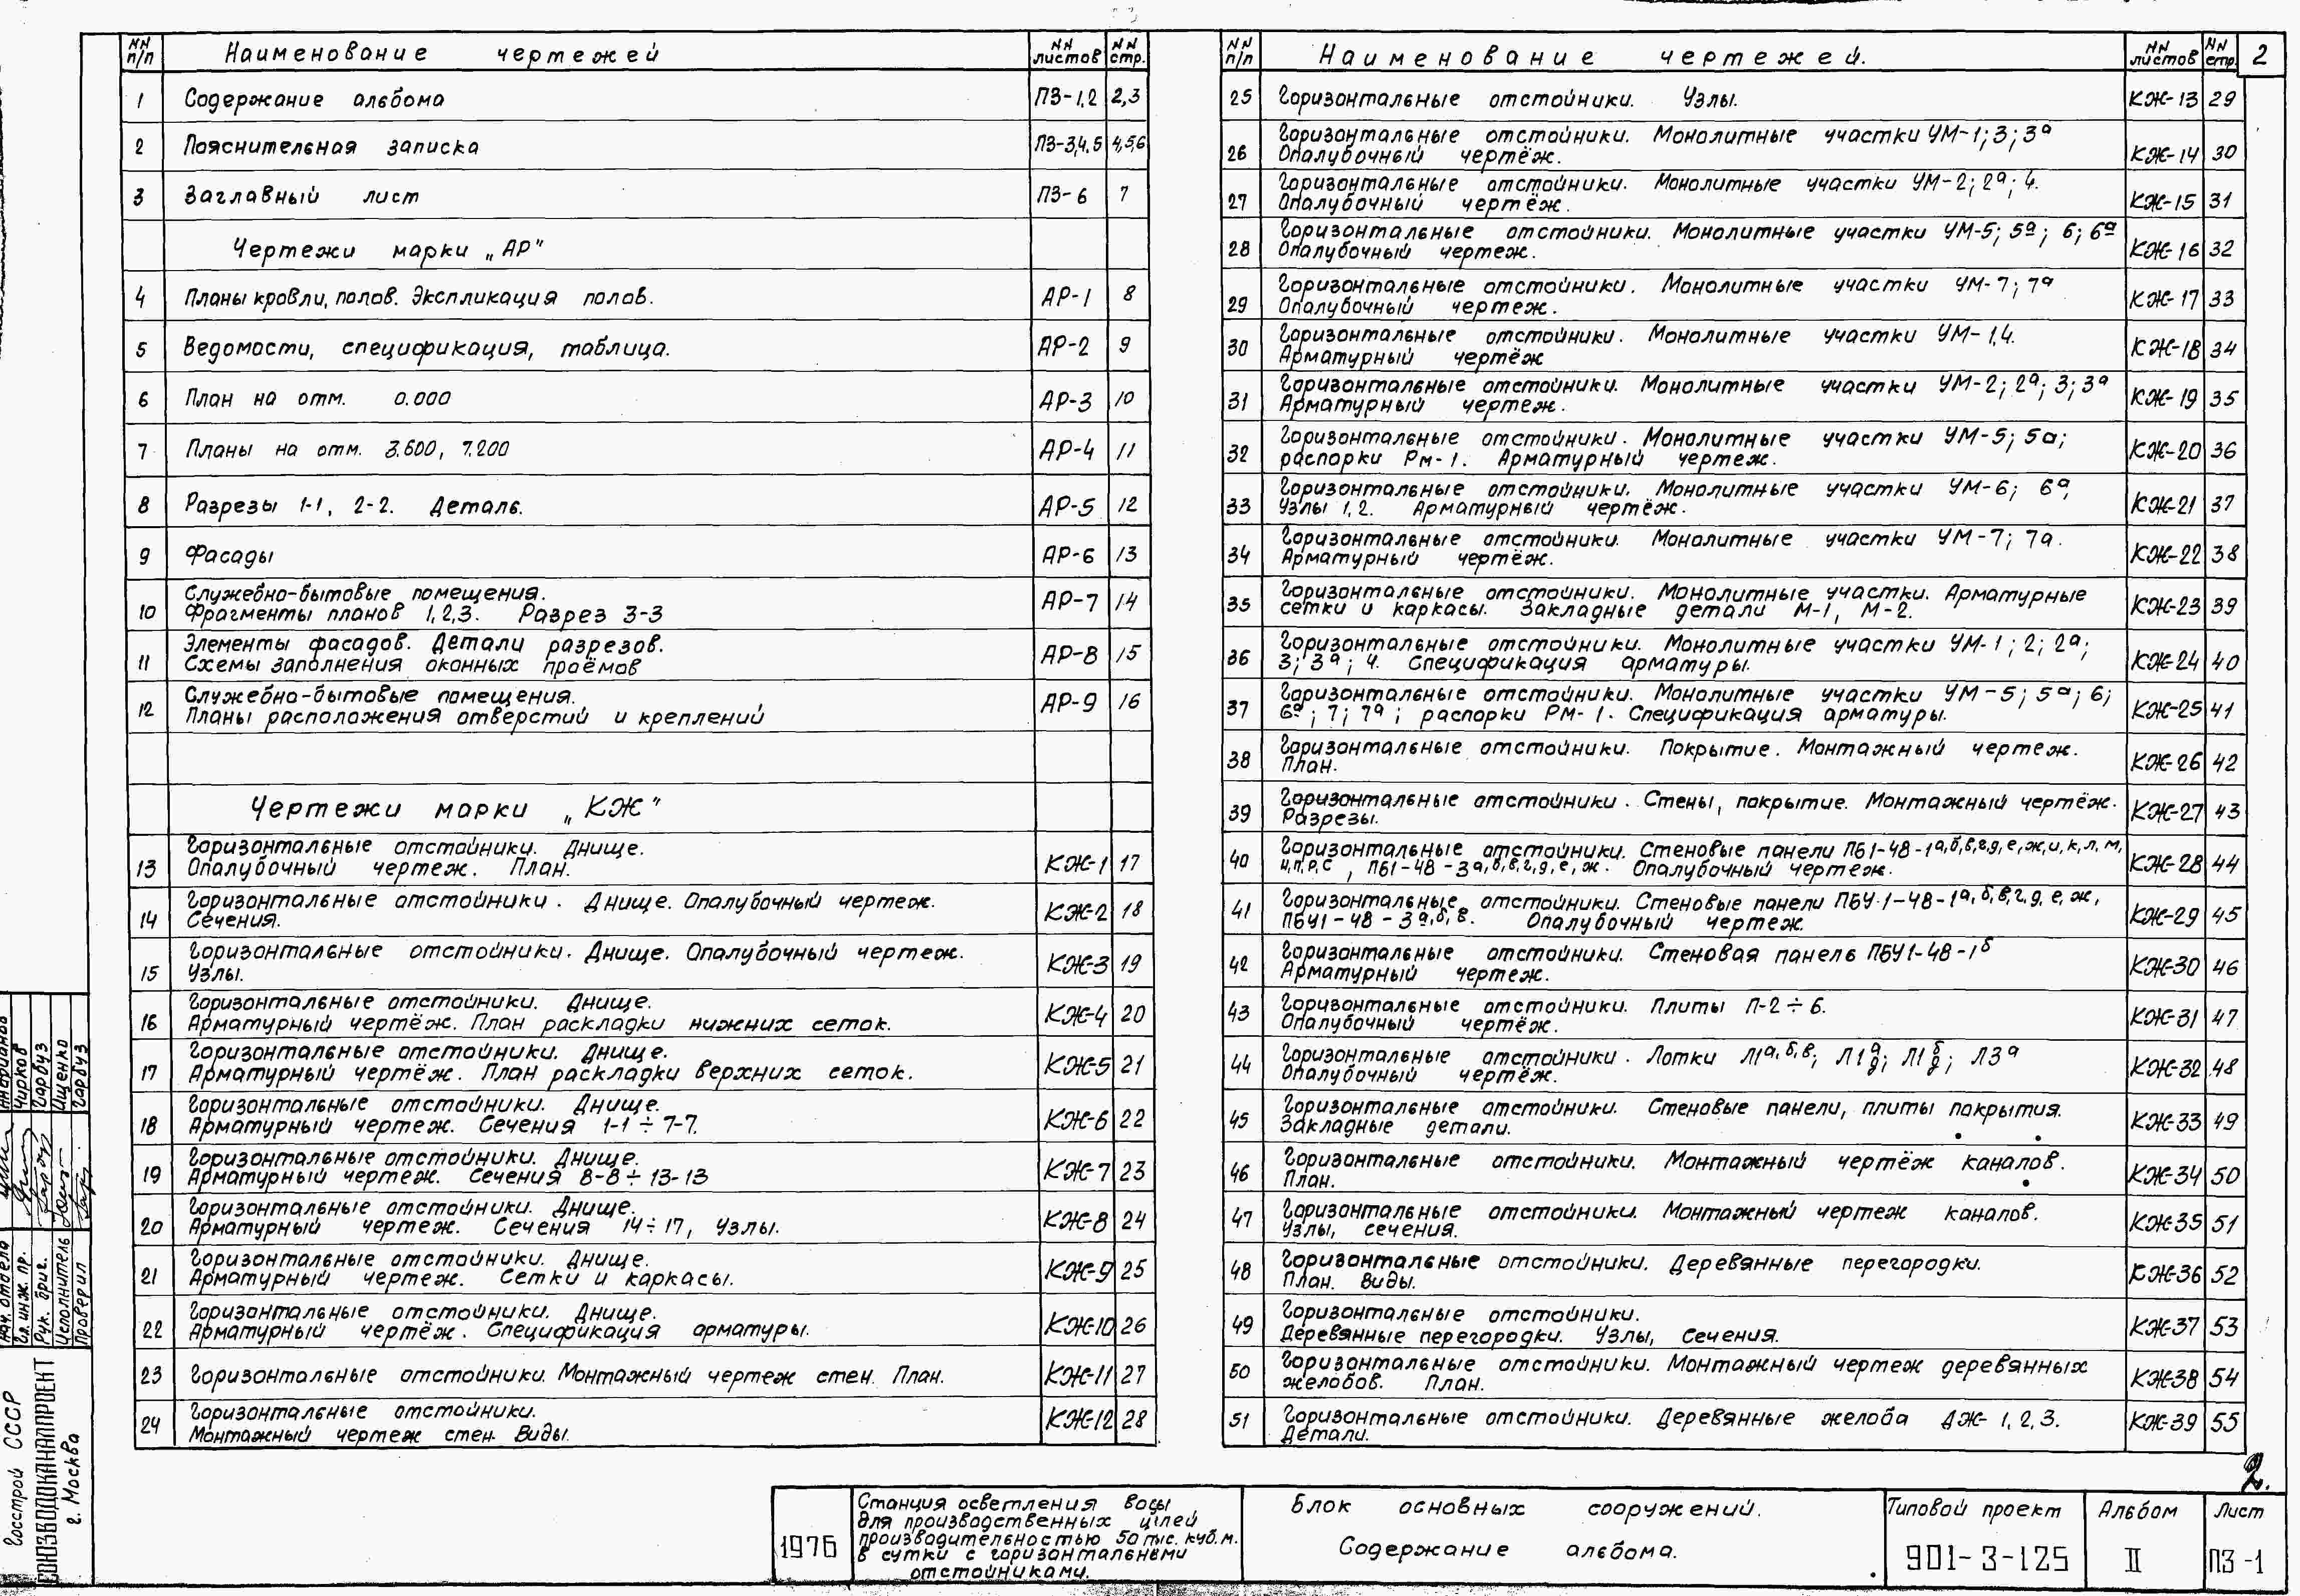 NN п/п Наименование чертежей NN листов NN стр.
1 Содержание альбома ПЗ-1,2 2,3
2 Пояснительная записка ПЗ-3,4,5 4,5,6
3 Заглавный лист ПЗ-6 7
Чертежи марки „АР"
4 Планы кровли, полов. Экспликация полов. АР-1 8
5 Ведомости, спецификация, таблица. АР-2 9
6 План на отм. 0.000 АР-3 10
7 Планы на отм. 3.600, 7.200 АР-4 11
8 Разрезы 1-1, 2-2. Деталь. АР-5 12
9 Фасады АР-6 13
10 Служебно-бытовые помещения.
Фрагменты планов 1,2,3. Разрез 3-3 АР-7 14
11 Элементы фасадов. Детали разрезов.
Схемы заполнения оконных проёмов АР-8 15
12 Служебно-бытовые помещения.
Планы расположения отверстий и креплений АР-9 16
Чертежи марки „КЖ"
13 Горизонтальные отстойники. Днище.
Опалубочный чертеж. План. КЖ-1 17
14 Горизонтальные отстойники. Днище. Опалубочный чертеж.
Сечения. КЖ-2 18
15 Горизонтальные отстойники. Днище. Опалубочный чертеж.
Узлы. КЖ-3 19
16 Горизонтальные отстойники. Днище.
Арматурный чертёж. План раскладки нижних сеток. КЖ-4 20
17 Горизонтальные отстойники. Днище.
Арматурный чертёж. План раскладки верхних сеток. КЖ-5 21
18 Горизонтальные отстойники. Днище.
Арматурный чертеж. Сечения 1-1 ÷ 7-7. КЖ-6 22
19 Горизонтальные отстойники. Днище.
Арматурный чертеж. Сечения 8-8 ÷ 13-13 КЖ-7 23
20 Горизонтальные отстойники. Днище.
Арматурный чертеж. Сечения 14÷17, Узлы. КЖ-8 24
21 Горизонтальные отстойники. Днище.
Арматурный чертеж. Сетки и каркасы. КЖ-9 25
22 Горизонтальные отстойники. Днище.
Арматурный чертёж. Спецификация арматуры. КЖ-10 26
23 Горизонтальные отстойники. Монтажный чертеж стен. План. КЖ-11 27
24 Горизонтальные отстойники.
Монтажный чертеж стен. Виды. КЖ-12 28
NN п/п Наименование чертежей. NN листов NN стр. 2
25 Горизонтальные отстойники. Узлы. КЖ-13 29
26 Горизонтальные отстойники. Монолитные участки УМ-1; 3; 3а
Опалубочный чертёж. КЖ-14 30
27 Горизонтальные отстойники. Монолитные участки УМ-2; 2а; 4.
Опалубочный чертёж. КЖ-15 31
28 Горизонтальные отстойники. Монолитные участки УМ-5; 5а; 6; 6а
Опалубочный чертеж. КЖ-16 32
29 Горизонтальные отстойники. Монолитные участки УМ-7; 7а
Опалубочный чертеж. КЖ-17 33
30 Горизонтальные отстойники. Монолитные участки УМ-1,4.
Арматурный чертёж КЖ-18 34
31 Горизонтальные отстойники. Монолитные участки УМ-2; 2а; 3; 3а
Арматурный чертеж. КЖ-19 35
32 Горизонтальные отстойники. Монолитные участки УМ-5; 5а;
распорки Рм-1. Арматурный чертеж. КЖ-20 36
33 Горизонтальные отстойники. Монолитные участки УМ-6; 6а,
Узлы 1,2. Арматурный чертёж. КЖ-21 37
34 Горизонтальные отстойники. Монолитные участки УМ-7; 7а.
Арматурный чертёж. КЖ-22 38
35 Горизонтальные отстойники. Монолитные участки. Арматурные
сетки и каркасы. Закладные детали М-1, М-2. КЖ-23 39
36 Горизонтальные отстойники. Монолитные участки УМ-1; 2; 2а;
3; 3а; 4. Спецификация арматуры. КЖ-24 40
37 Горизонтальные отстойники. Монолитные участки УМ-5; 5а; 6;
6а; 7; 7а; распорки РМ-1. Спецификация арматуры. КЖ-25 41
38 Горизонтальные отстойники. Покрытие. Монтажный чертеж.
План. КЖ-26 42
39 Горизонтальные отстойники. Стены, покрытие. Монтажный чертёж.
Разрезы. КЖ-27 43
40 Горизонтальные отстойники. Стеновые панели ПБ1-48-1а,б,в,г,д,е,ж,и,к,л,м,
н,п,р,с, ПБ1-48-3а,б,в,г,д,е,ж. Опалубочный чертеж. КЖ-28 44
41 Горизонтальные отстойники. Стеновые панели ПБУ1-48-1а,б,в,г,д,е,ж,
ПБУ1-48-3а,б,в. Опалубочный чертеж. КЖ-29 45
42 Горизонтальные отстойники. Стеновая панель ПБУ1-48-1б
Арматурный чертеж. КЖ-30 46
43 Горизонтальные отстойники. Плиты П-2÷6.
Опалубочный чертёж. КЖ-31 47
44 Горизонтальные отстойники. Лотки Л1а,б,в; Л1а/д; Л1б/д; Л3а
Опалубочный чертёж. КЖ-32 48
45 Горизонтальные отстойники. Стеновые панели, плиты покрытия.
Закладные детали. КЖ-33 49
46 Горизонтальные отстойники. Монтажный чертёж каналов.
План. КЖ-34 50
47 Горизонтальные отстойники. Монтажный чертеж каналов.
Узлы, сечения. КЖ-35 51
48 Горизонтальные отстойники. Деревянные перегородки.
План. Виды. КЖ-36 52
49 Горизонтальные отстойники.
Деревянные перегородки. Узлы, Сечения. КЖ-37 53
50 Горизонтальные отстойники. Монтажный чертеж деревянных
желобов. План. КЖ-38 54
51 Горизонтальные отстойники. Деревянные желоба ДЖ-1,2,3.
Детали. КЖ-39 55
2.
Госстрой СССР
СОЮЗВОДОКАНАЛПРОЕКТ
г. Москва
Нач. отдела
Гл. инж. пр. Чирков
Рук. бриг. Гарбуз
Исполнитель Ищенко
Проверил Гарбуз
1976
Станция осветления воды
для производственных целей
производительностью 50 тыс. куб. м.
в сутки с горизонтальными
отстойниками.
Блок основных сооружений.
Содержание альбома.
Типовой проект
901-3-125
Альбом
II
Лист
ПЗ-1